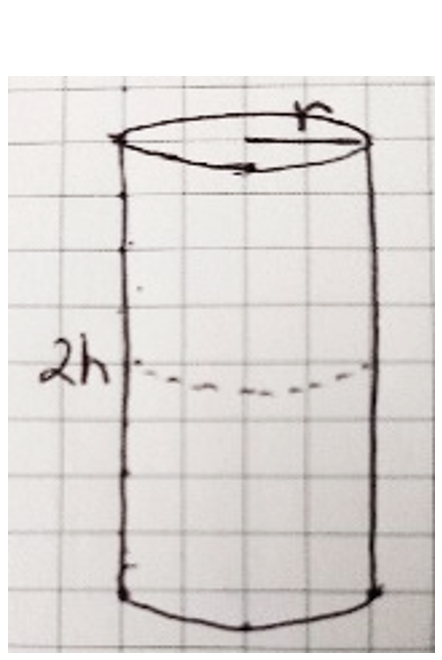 r
2h